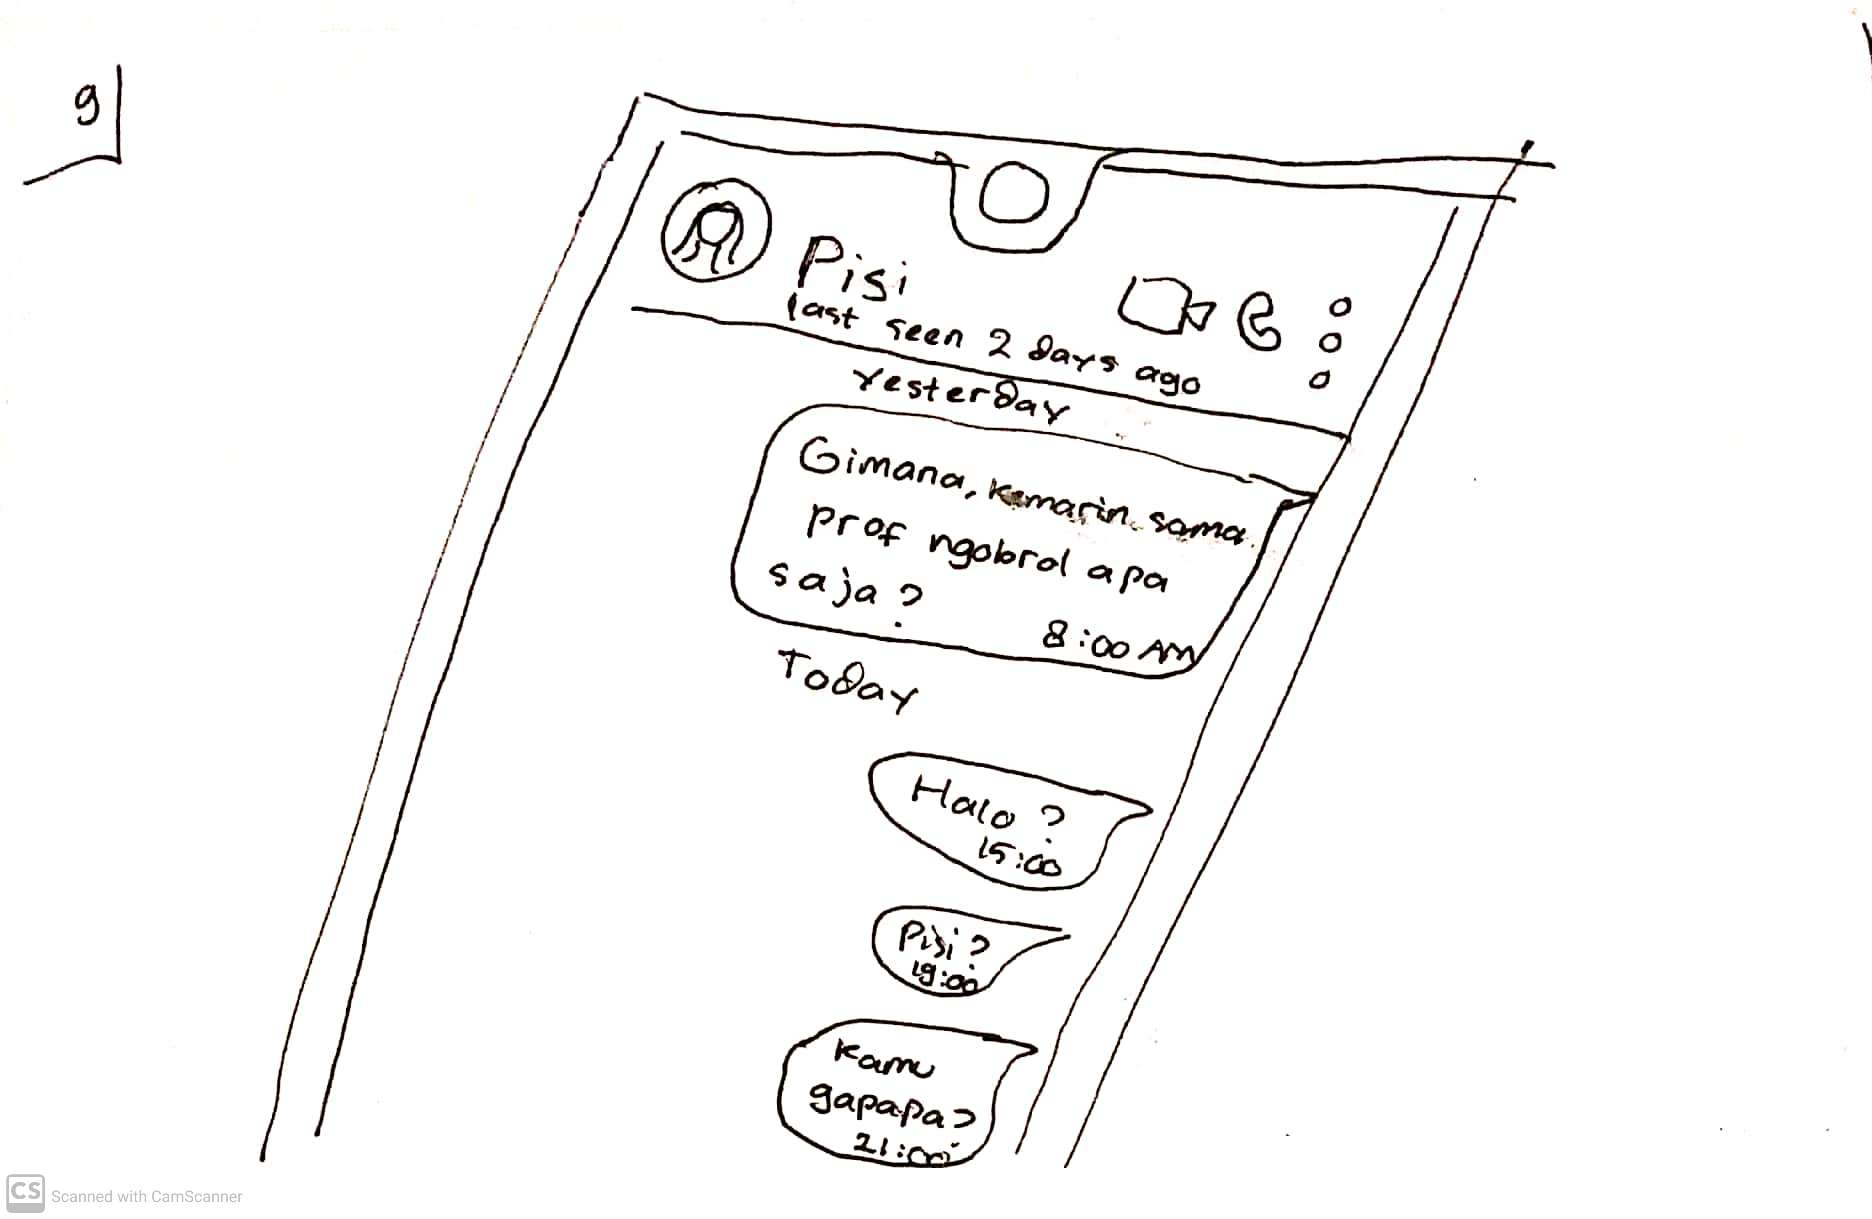 9
Pisi
last seen 2 days ago
Yesterday
Gimana, kemarin sama
prof ngobrol apa
saja?
8:00 AM
Today
Halo?
15:00
Pisi?
19:00
Kamu
gapapa?
21:00
CS Scanned with CamScanner